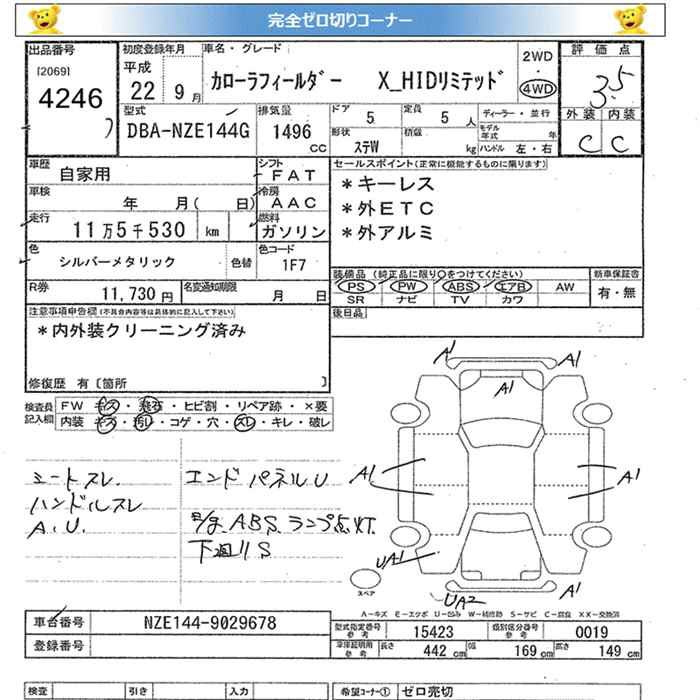 完全ゼロ切りコーナー
出品番号 初度登録年月 車名・グレード 2WD 評価点
[2069] 平成 ・ 3.5
4246 22 9月 カローラフィールダー X_HIDリミテッド 4WD
型式 排気量 ドア 定員 ディーラー・並行 外装 内装
DBA-NZE144G 1496 cc 5 5人 モデル年式 年 C C
形状 積載 ハンドル 左・右
ステW kg
車歴 シフト セールスポイント(正常に機能するものに限ります)
自家用 FAT *キーレス
車検 冷房 *外ETC
年 月( 日) AAC *外アルミ
走行 燃料
11万5千530 km ガソリン
色 色替 色コード
シルバーメタリック 1F7
装備品(純正品に限り○をつけてください) 新車保証書
R券 名変通知期限 PS PW ABS エアB AW 有・無
11,730円 月 日 SR ナビ TV カワ
注意事項申告欄(不具合内容等は具体的に記入して下さい) 後日品
*内外装クリーニング済み
修復歴 有〔箇所 〕
検査員記入欄 FW キズ・飛石・ヒビ割・リペア跡・×要
内装 キズ・汚れ・コゲ・穴・スレ・キレ・破レ
A1 A1
A1
シートスレ エンドパネルU A1 A1
ハンドルスレ
A.U. ABSランプ点灯
下廻りS UA1
スペア A1
UA2
A-キズ E-エクボ U-凹み W-補修跡 S-サビ C-腐食 XX-交換済
車台番号 NZE144-9029678 型式指定番号 参考 15423 類別区分番号 参考 0019
登録番号 車庫証明用 参考 長さ 442 cm 幅 169 cm 高さ 149 cm
検査 引き 入力 希望コーナー① ゼロ売切